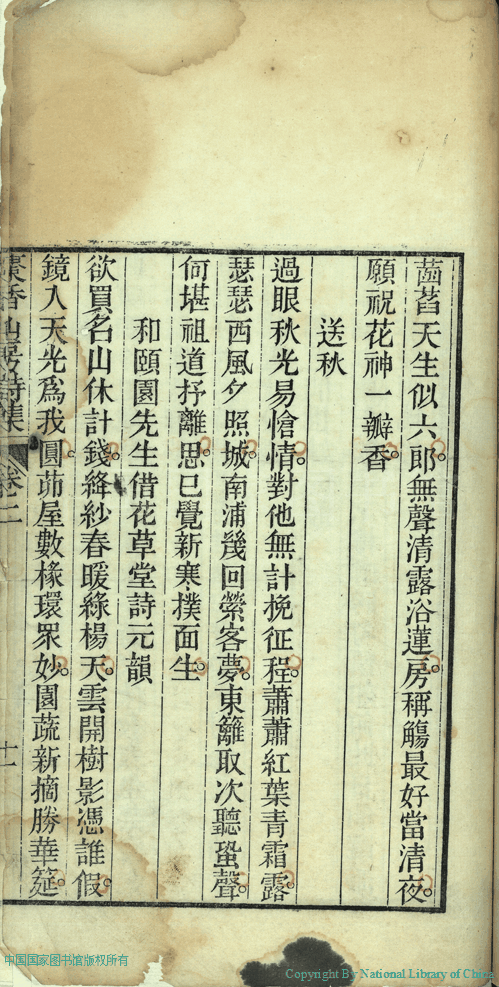 菡萏天生似六郎。無聲清露浴蓮房。稱觴最好當清夜。
願祝花神一瓣香。
送秋
過眼秋光易愴情。對他無計挽征程。蕭蕭紅葉青霜露。
瑟瑟西風夕照城。南浦幾回縈客夢。東籬取次聽蛩聲。
何堪祖道抒離思。已覺新寒撲面生。
和頤園先生借花草堂詩元韻
欲買名山休計錢。絳紗春暖綠楊天。雲開樹影憑誰假。
鏡入天光爲我圓。茆屋數椽環眾妙。園蔬新摘勝華筵。
山房詩集 卷二 十一
中国国家图书馆版权所有
Copyright By National Library of China